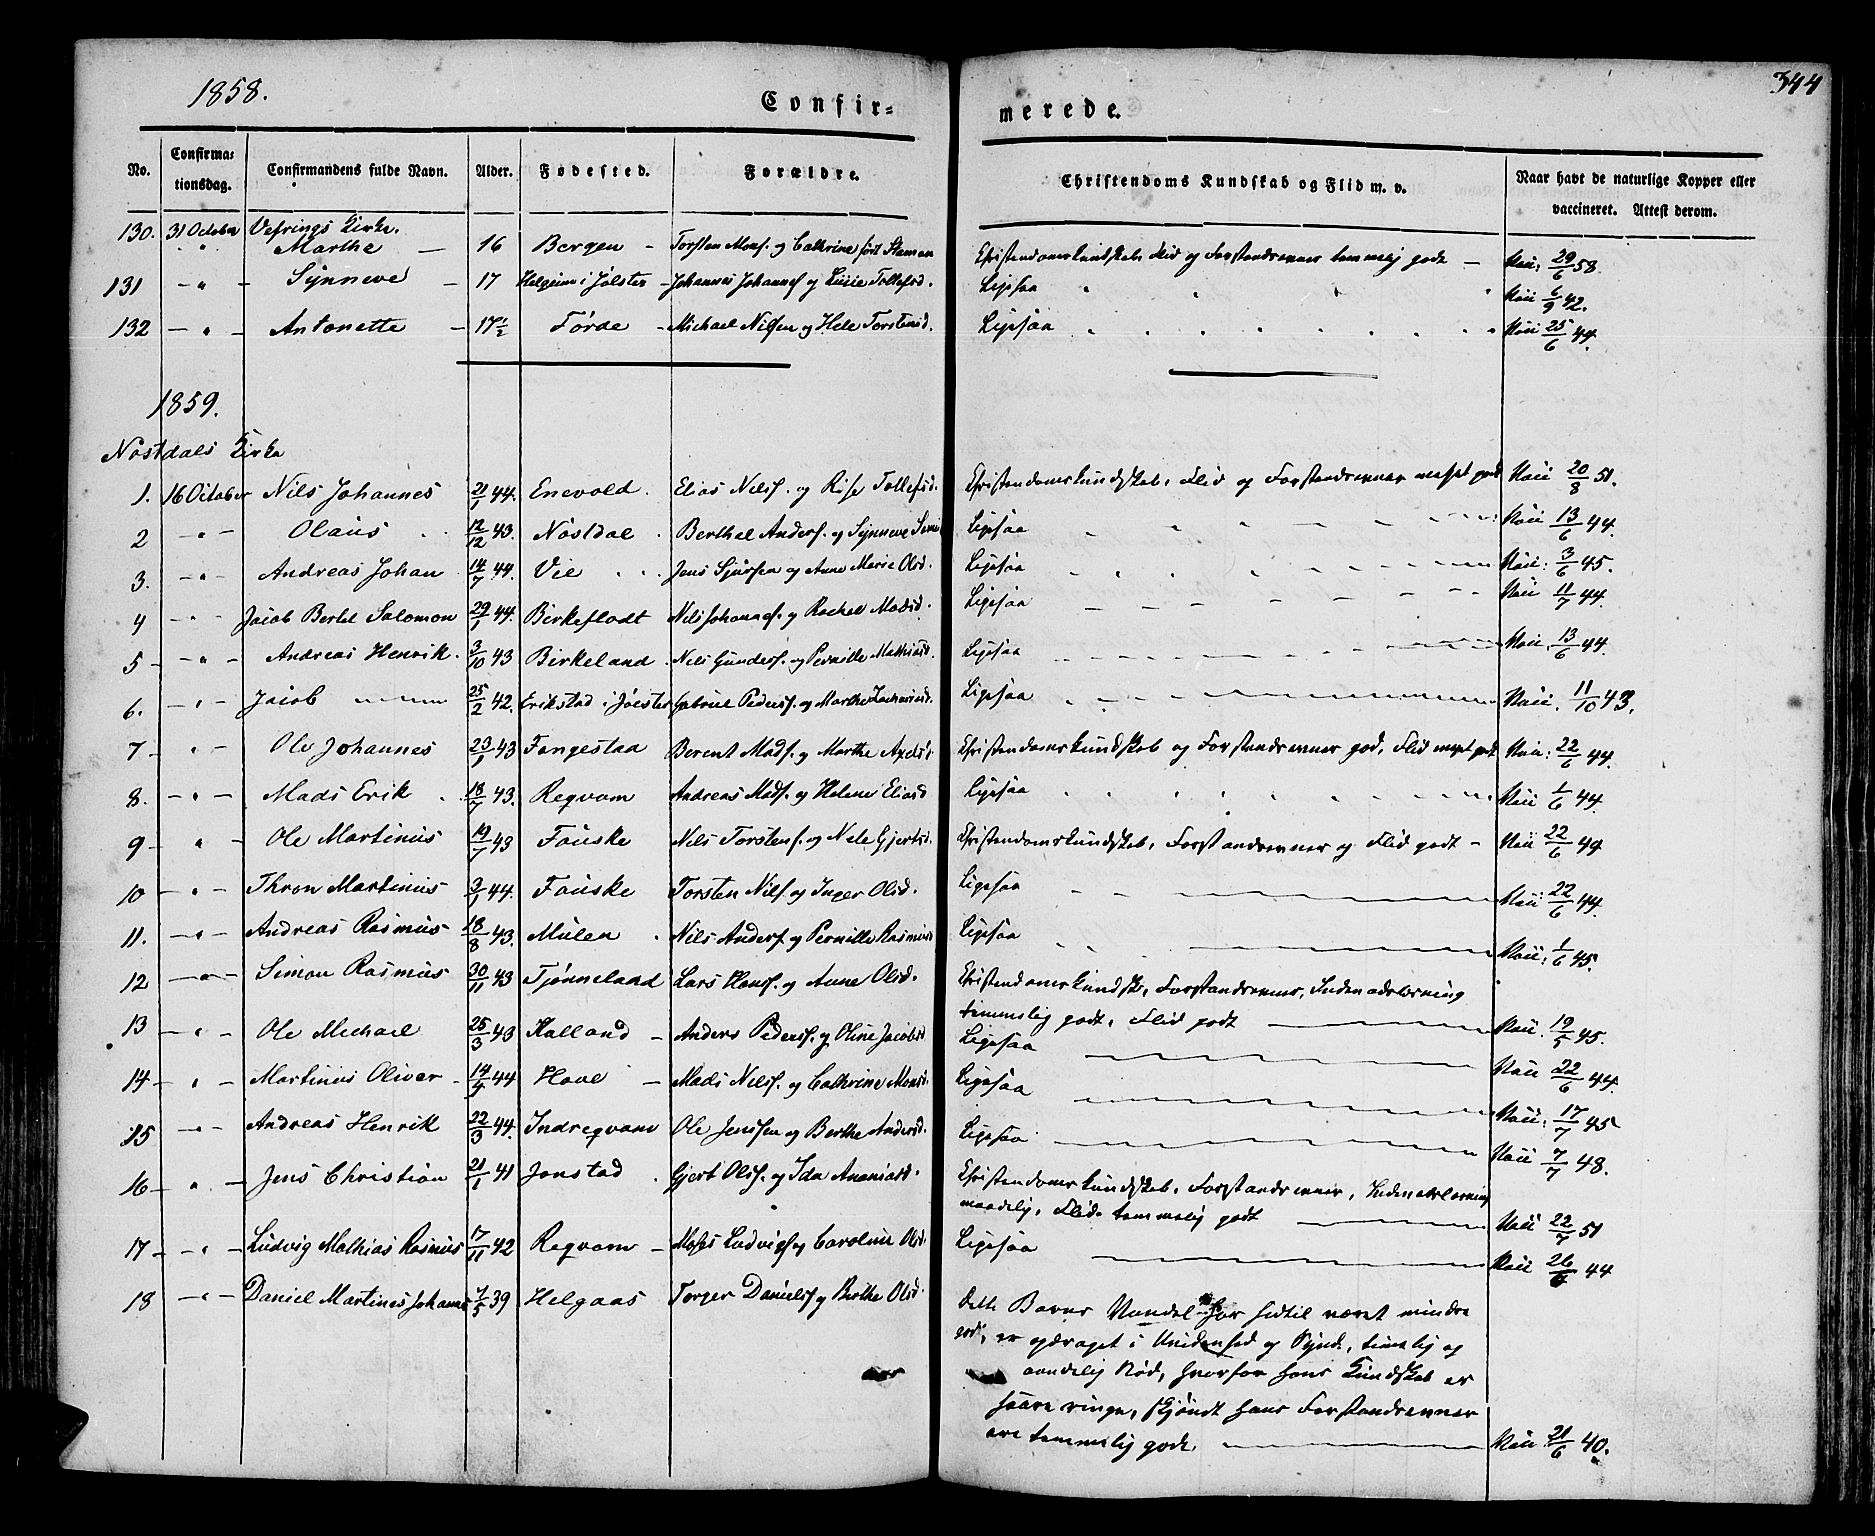 1858.
344
Confir-
merede.
No.
Confirma-
tionsdag.
Confirmandens fulde Navn.
Alder.
Fødested.
Forældre.
Christendoms Kundskab og Flid m. v.
Naar havt de naturlige Kopper eller
vaccineret. Attest derom.
Vefrings Kirke.
130. 31 October Marthe 16 Bergen Torsten Mons. og Cathrine Christendomskundskab, Flid og Forstandsevner temmelig gode Vacc: 29/6 58.
131 - " - Synneve 17 Helgeim i Jølster Johannes Johannes. og Lucie Tollefsd. Ligesaa Vacc 6/9 42.
132 - " - Antonette 17½ Førde Michael Nilsen og Hele Torstensd. Ligesaa Vacc 25/6 44.
1859.
Nøstdals Kirke
1. 16 October Nils Johannes 21/1 44. Enevold. Elias Nilss. og Rise Tollefsd. Christendomskundskab, Flid og Forstandsevner meget god Vacc 20/8 51.
2 - " - Olaus 12/12 43. Nøstdal Berthel Anders. og Synneve Ligesaa Vacc 13/6 44.
3. - " - Andreas Johan 14/7 44. Vie Jens Sjursen og Anne Marie Olsd. Ligesaa Vacc: 3/6 45.
4 - " - Jacob Bertel Salomon 29/1 44. Birkeflodt Nils Johannes. og Rachel Madsd. Ligesaa Vacc 11/7 44.
5 - " - Andreas Henrik. 3/10 43 Birkeland. Nils Gunders. og Pernille Mathiasd. Ligesaa Vacc. 13/6 44.
6. - " - Jacob 25/2 42. Erikstad i Jølster Gabriel Peders. og Marthe Zachariasd. Ligesaa Vacc. 11/10 43.
7 - " - Ole Johannes 23/1 43 Fangestaa Berent Mads. og Marthe Axelsd. Christendomskundskab og Forstandsevner god, Flid meget god Vacc: 22/6 44.
8. - " - Mads Erik 18/7 43. Reqvam Andreas Mads. og Helene Eliasd Ligesaa Vacc 1/6 44.
9 - " - Ole Martinus 19/7 43 Fauske Nils Torstens. og Nele Gjertsd. Christendomskundskab, Forstandsevner og Flid godt - Vacc 22/6 44
10 - " - Thron Martinus 3/1 44. Fauske Torsten Nils. og Inger Olsd. Ligesaa Vacc 22/6 44.
11. - " - Andreas Rasmus 18/8 43. Mulen Nils Anders. og Pernille Rasmusd Ligesaa Vacc: 1/6 45.
12 - " - Simon Rasmus 30/11 43 Tjønneland Lars Hans. og Anne Olsd. Christendomskundsk, Forstandsevner, Indenadslæsning
temmelig godt, Flid godt Vacc 19/5 45.
13 - " - Ole Michael 25/3 43 Halland - Anders Peders. og Oline Jacobsd Ligesaa Vacc 22/6 44.
14 - " - Martinus Oliver 14/5 44 Hove - Mads Nilss. og Cathrine Monsd. Ligesaa Vacc: 17/7 45
15 - " - Andreas Henrik 22/3 44. Indreqvam Ole Jenssen og Berthe Andersd. Ligesaa Vacc 7/7 48.
16 - " - Jens Christian 21/1 41 Jonstad Gjert Ols. og Ida Ananiasd. Christendomskundskab, Forstandsevner, Indenadslæsning
maadelig, Flid temmelig godt Vacc 22/7 51
17 - " - Ludvig Mathias Rasmus 7/11 42 Reqvam - Moses Ludvigs. og Caroline Olsd. Ligesaa Vacc 26/6 44
18 - " - Daniel Martines Johannes 7/5 39 Helgaas Torger Daniels. og Berthe Olsd. Dette Barns Vandel har hidtil været mindre
god, er opdraget i Uvidenhed og Synd, timelig og
aandelig Nød, hvorfor hans Kundskab er
saare ringe, skjøndt hans Forstandsevner
ere temmelig gode. Vacc 21/6 40.